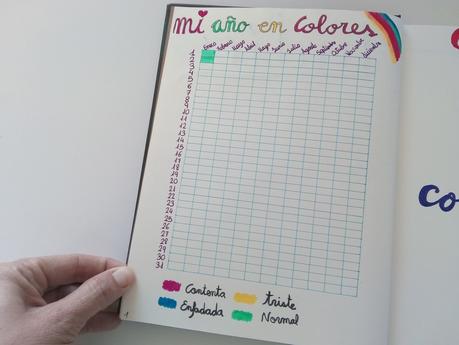 mi año en colores
Enero Febrero Marzo Abril Mayo Junio Julio Agosto Septiembre Octubre Noviembre Diciembre
1
2
3
4
5
6
7
8
9
10
11
12
13
14
15
16
17
18
19
20
21
22
23
24
25
26
27
28
29
30
31
Contenta triste
Enfadada Normal
1
co